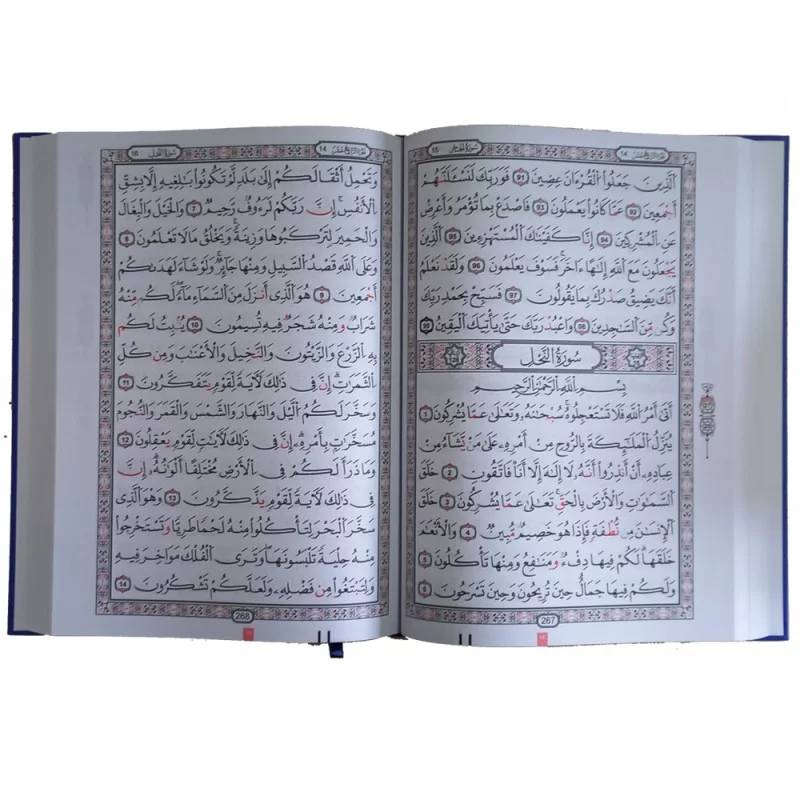 الجزء الرابع عشر 14
سورة الحجر 15
الَّذِينَ جَعَلُوا الْقُرْءَانَ عِضِينَ 91 فَوَرَبِّكَ لَنَسْـَٔلَنَّهُمْ
أَجْمَعِينَ 92 عَمَّا كَانُوا يَعْمَلُونَ 93 فَاصْدَعْ بِمَا تُؤْمَرُ وَأَعْرِضْ
عَنِ الْمُشْرِكِينَ 94 إِنَّا كَفَيْنَاكَ الْمُسْتَهْزِءِينَ 95 الَّذِينَ
يَجْعَلُونَ مَعَ اللَّهِ إِلَٰهًا ءَاخَرَ فَسَوْفَ يَعْلَمُونَ 96 وَلَقَدْ نَعْلَمُ
أَنَّكَ يَضِيقُ صَدْرُكَ بِمَا يَقُولُونَ 97 فَسَبِّحْ بِحَمْدِ رَبِّكَ
وَكُن مِّنَ السَّاجِدِينَ 98 وَاعْبُدْ رَبَّكَ حَتَّىٰ يَأْتِيَكَ الْيَقِينُ 99
سُورَةُ النَّحْلِ
بِسْمِ اللَّهِ الرَّحْمَٰنِ الرَّحِيمِ
أَتَىٰ أَمْرُ اللَّهِ فَلَا تَسْتَعْجِلُوهُ سُبْحَانَهُ وَتَعَالَىٰ عَمَّا يُشْرِكُونَ 1
يُنَزِّلُ الْمَلَائِكَةَ بِالرُّوحِ مِنْ أَمْرِهِ عَلَىٰ مَن يَشَاءُ مِنْ
عِبَادِهِ أَنْ أَنذِرُوا أَنَّهُ لَا إِلَٰهَ إِلَّا أَنَا فَاتَّقُونِ 2 خَلَقَ
السَّمَاوَاتِ وَالْأَرْضَ بِالْحَقِّ تَعَالَىٰ عَمَّا يُشْرِكُونَ 3 خَلَقَ
الْإِنسَانَ مِن نُّطْفَةٍ فَإِذَا هُوَ خَصِيمٌ مُّبِينٌ 4 وَالْأَنْعَامَ
خَلَقَهَا لَكُمْ فِيهَا دِفْءٌ وَمَنَافِعُ وَمِنْهَا تَأْكُلُونَ 5
وَلَكُمْ فِيهَا جَمَالٌ حِينَ تُرِيحُونَ وَحِينَ تَسْرَحُونَ 6
267
الجزء الرابع عشر 14
سورة النحل 16
وَتَحْمِلُ أَثْقَالَكُمْ إِلَىٰ بَلَدٍ لَّمْ تَكُونُوا بَالِغِيهِ إِلَّا بِشِقِّ
الْأَنفُسِ إِنَّ رَبَّكُمْ لَرَءُوفٌ رَّحِيمٌ 7 وَالْخَيْلَ وَالْبِغَالَ
وَالْحَمِيرَ لِتَرْكَبُوهَا وَزِينَةً وَيَخْلُقُ مَا لَا تَعْلَمُونَ 8
وَعَلَى اللَّهِ قَصْدُ السَّبِيلِ وَمِنْهَا جَائِرٌ وَلَوْ شَاءَ لَهَدَىٰكُمْ
أَجْمَعِينَ 9 هُوَ الَّذِي أَنزَلَ مِنَ السَّمَاءِ مَاءً لَّكُم مِّنْهُ
شَرَابٌ وَمِنْهُ شَجَرٌ فِيهِ تُسِيمُونَ 10 يُنبِتُ لَكُم
بِهِ الزَّرْعَ وَالزَّيْتُونَ وَالنَّخِيلَ وَالْأَعْنَابَ وَمِن كُلِّ
الثَّمَرَاتِ إِنَّ فِي ذَٰلِكَ لَآيَةً لِّقَوْمٍ يَتَفَكَّرُونَ 11
وَسَخَّرَ لَكُمُ الَّيْلَ وَالنَّهَارَ وَالشَّمْسَ وَالْقَمَرَ وَالنُّجُومُ
مُسَخَّرَاتٌ بِأَمْرِهِ إِنَّ فِي ذَٰلِكَ لَآيَاتٍ لِّقَوْمٍ يَعْقِلُونَ 12
وَمَا ذَرَأَ لَكُمْ فِي الْأَرْضِ مُخْتَلِفًا أَلْوَانُهُ إِنَّ
فِي ذَٰلِكَ لَآيَةً لِّقَوْمٍ يَذَّكَّرُونَ 13 وَهُوَ الَّذِي
سَخَّرَ الْبَحْرَ لِتَأْكُلُوا مِنْهُ لَحْمًا طَرِيًّا وَتَسْتَخْرِجُوا
مِنْهُ حِلْيَةً تَلْبَسُونَهَا وَتَرَى الْفُلْكَ مَوَاخِرَ فِيهِ
وَلِتَبْتَغُوا مِن فَضْلِهِ وَلَعَلَّكُمْ تَشْكُرُونَ 14
268